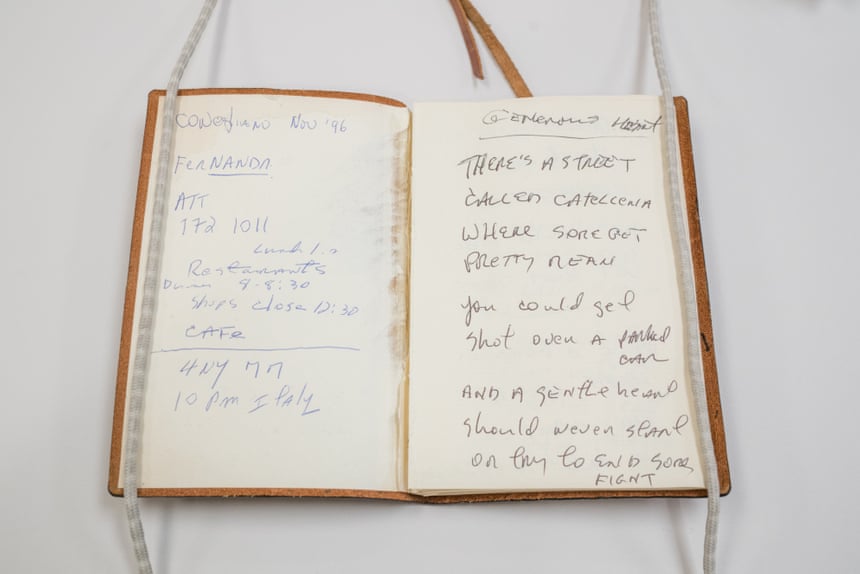 CONEGLIANO NOV '96
FERNANDA
ATT
172 1011
Lunch 1.
Restaurants
8-8:30
Shops close 12:30
CAFE
4 NY
10 pm Italy
GENEROUS Heart
THERE'S A STREET
CALLED CATELLENA
WHERE SOME GET
PRETTY MEAN
you could get
shot over a PARKED
CAR
AND A GENTLE heart
should never start
or try to END SOME
FIGHT